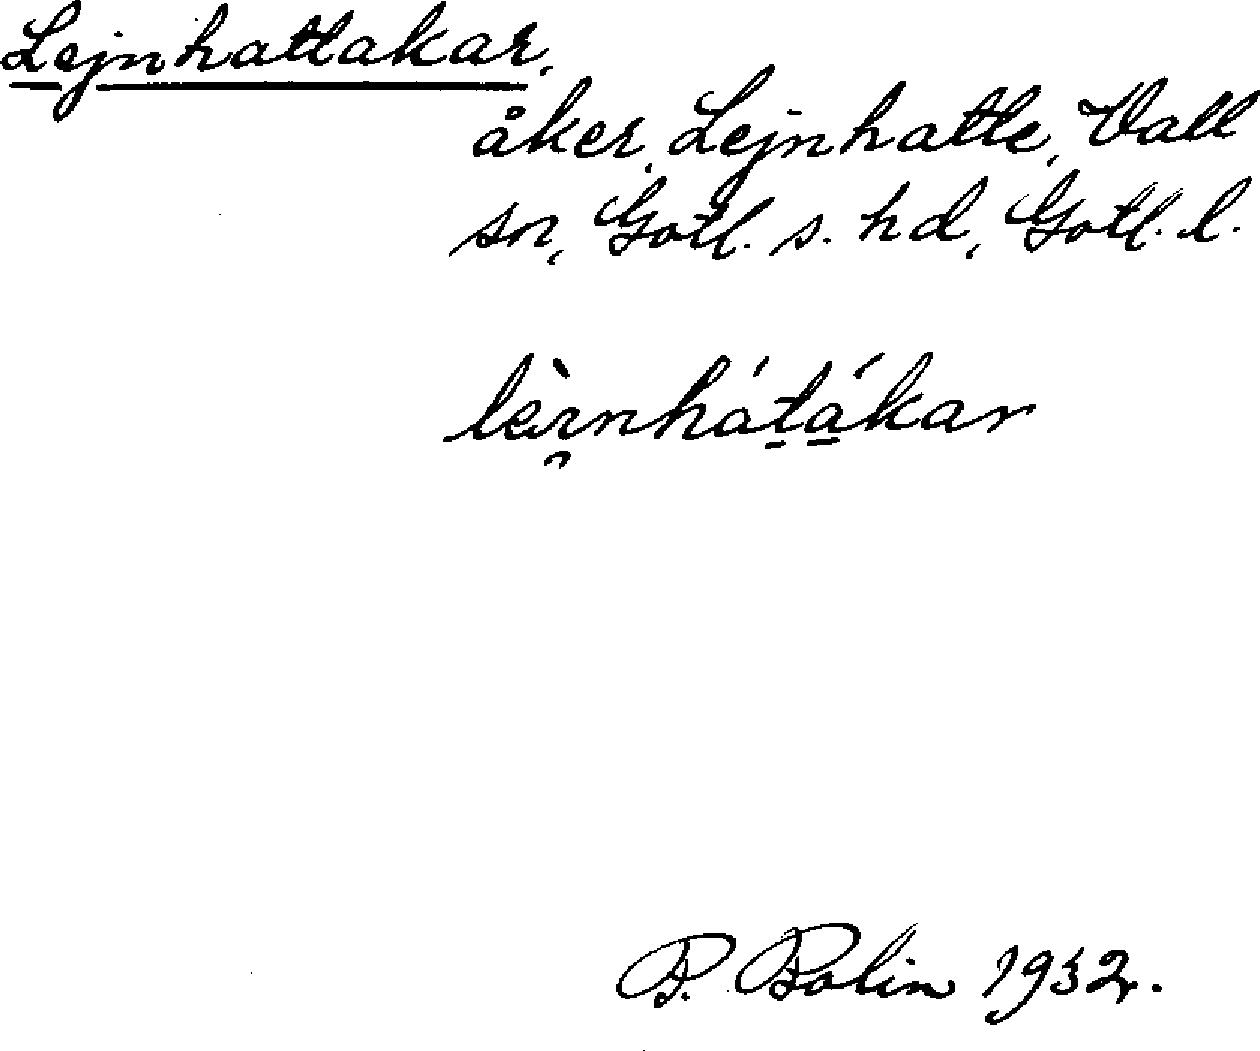 Lejnhattakar,
åker, Lejnhatte, Vall
sn, Gotl. s. hd, Gotl. l.
lèi̯nhát̠á̠kar
P. Bolin 1932.